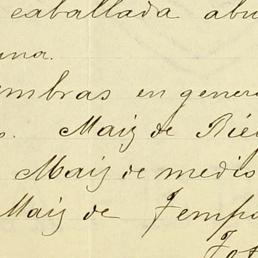 caballada abu
una.
mbras en genera
s. Maiz de Rie
Maiz de medio
Maiz de Tempo
Tot